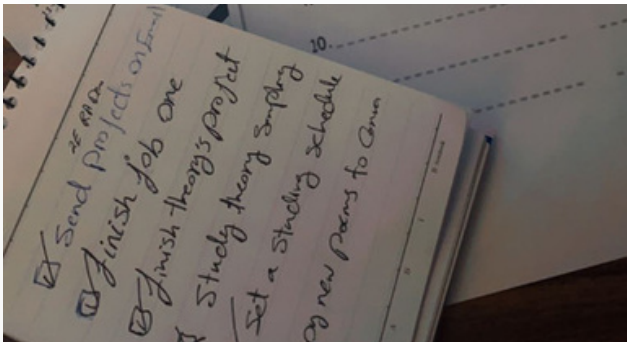 Send projects on Email
Finish job one
Finish theory's project
Study theory sampling
Set a studing schedule
new poems to
10.